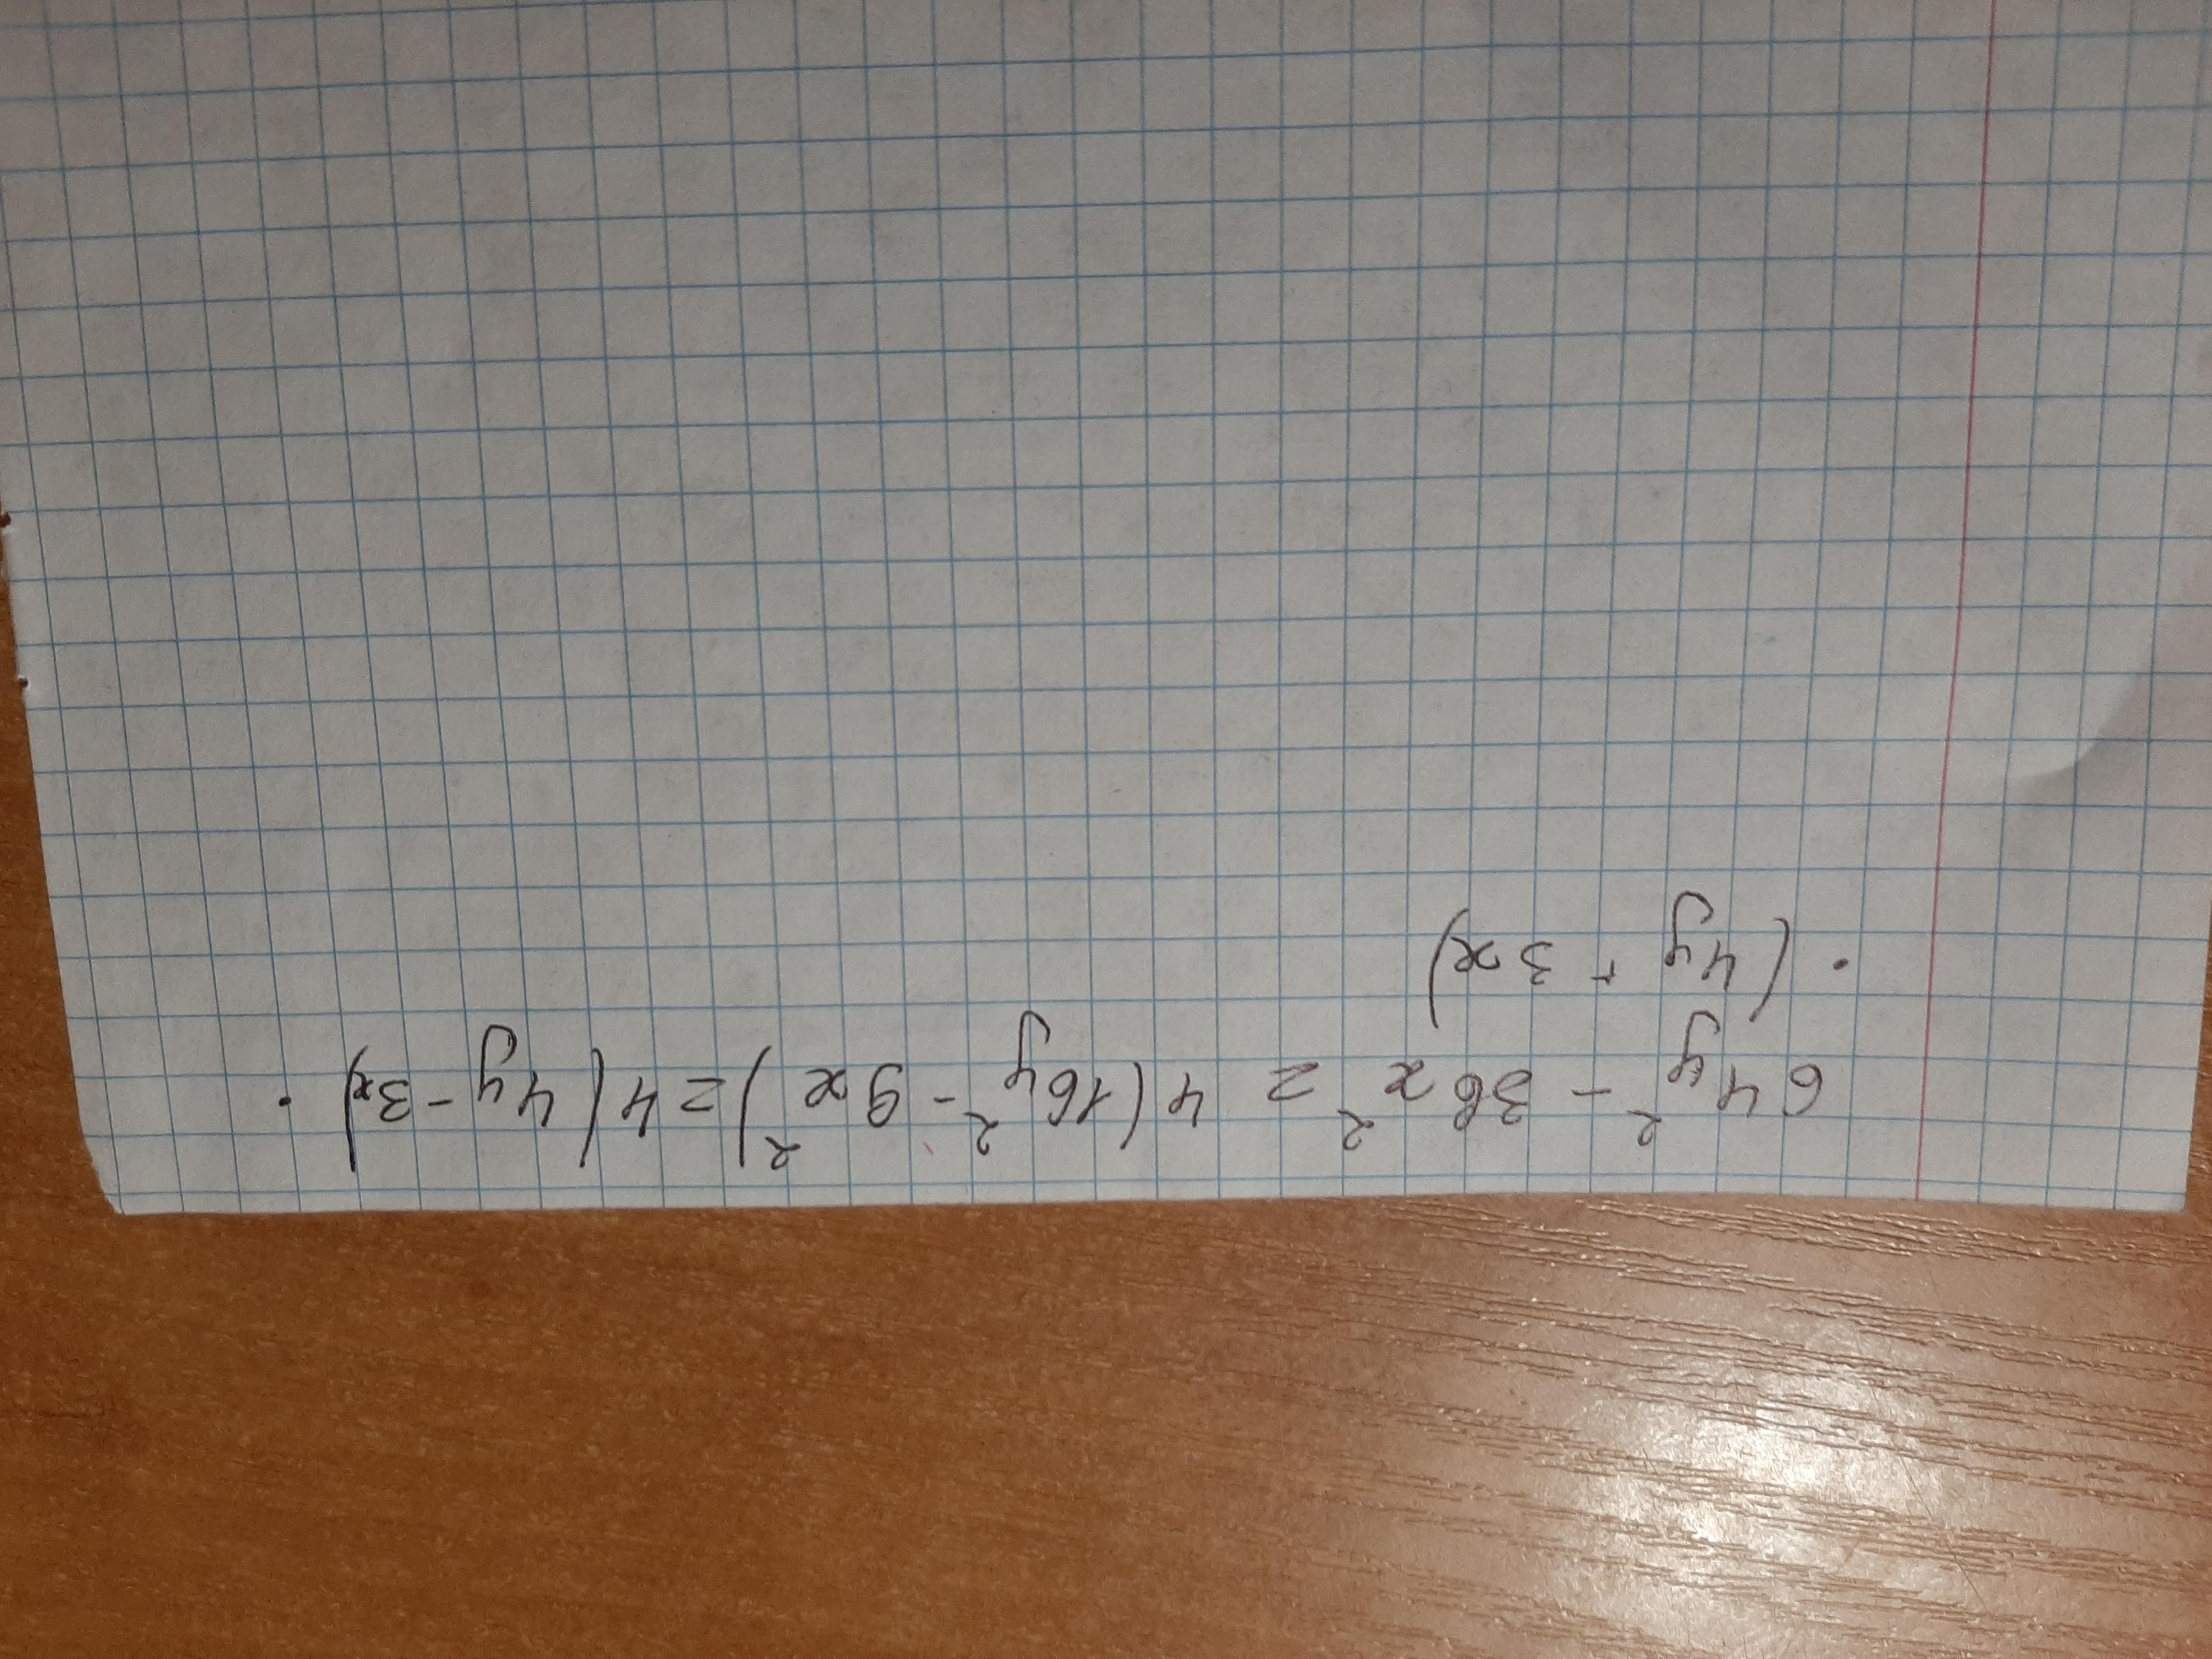 64y² - 36x² = 4(16y² - 9x²) = 4(4y - 3x) ·
· (4y + 3x)